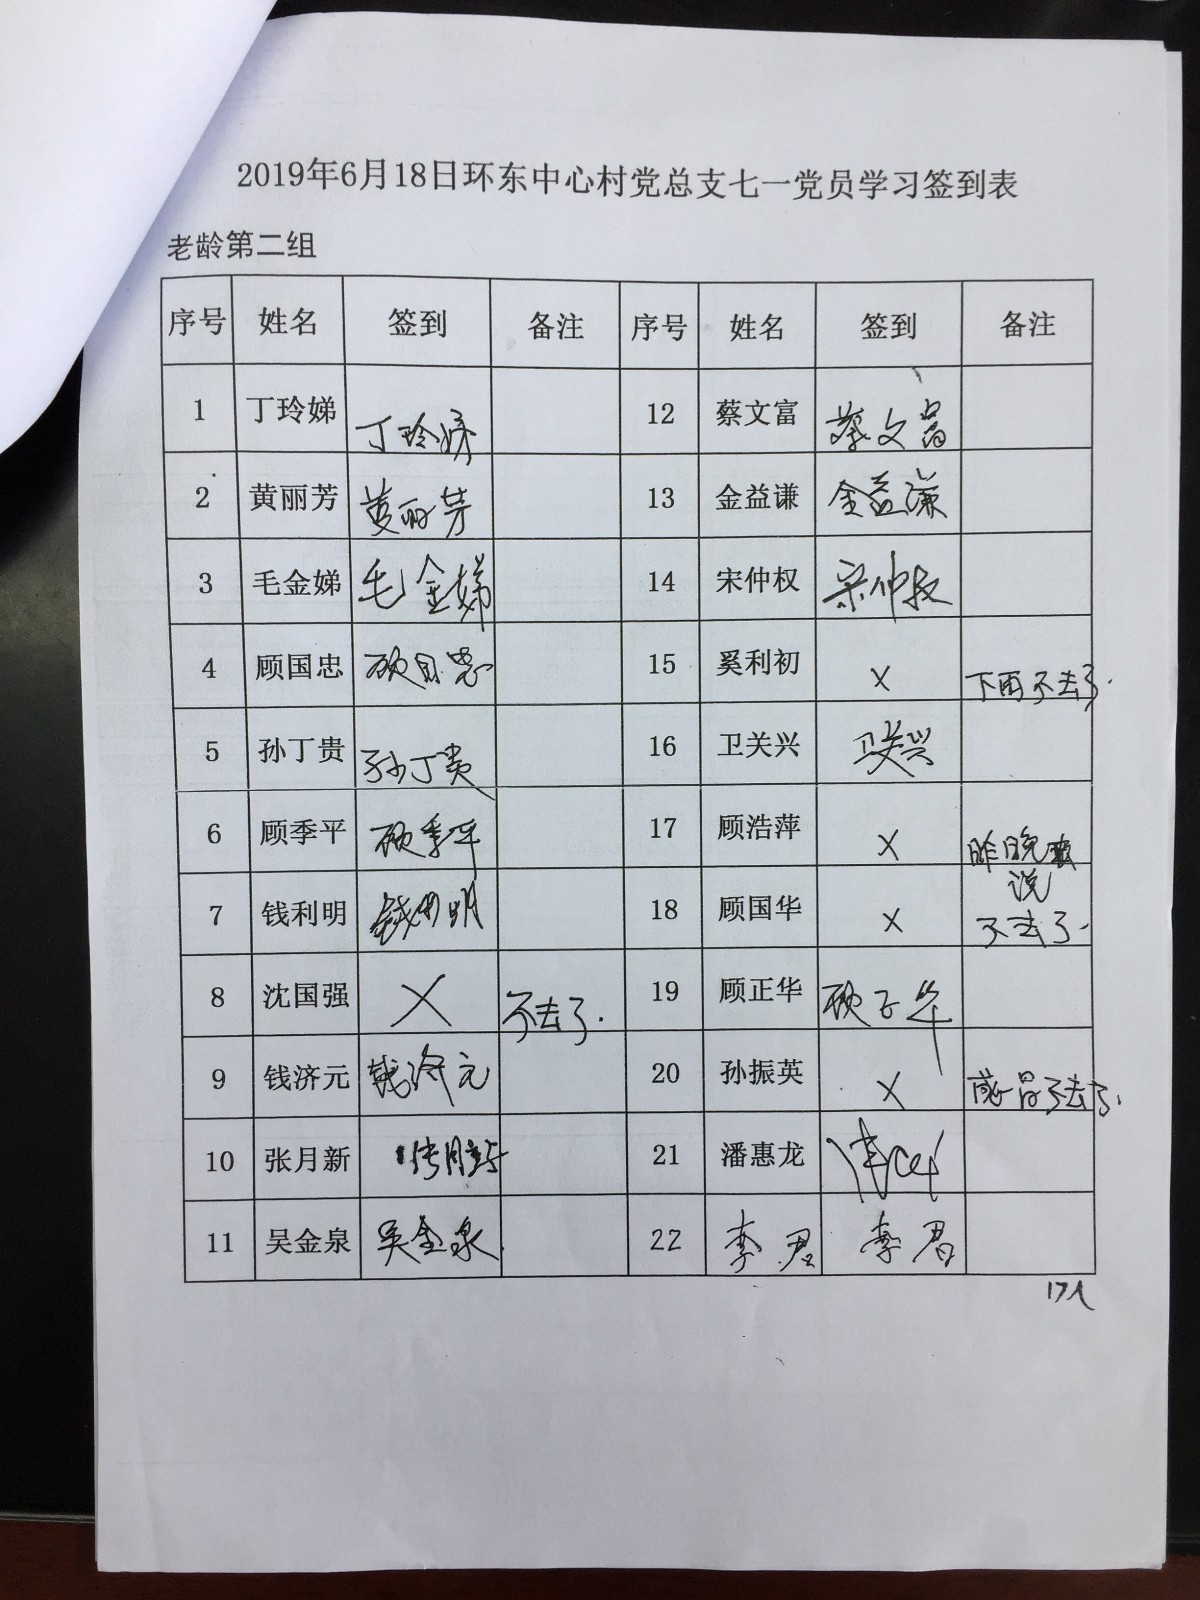 2019年6月18日环东中心村党总支七一党员学习签到表
老龄第二组
序号 姓名 签到 备注 序号 姓名 签到 备注
1 丁玲娣 丁玲娣 12 蔡文富 蔡文富
2 黄丽芳 黄丽芳 13 金益谦 金益谦
3 毛金娣 毛金娣 14 宋仲权 宋仲权
4 顾国忠 顾国忠 15 奚利初 × 下雨不去了.
5 孙丁贵 孙丁贵 16 卫关兴 卫关兴
6 顾季平 顾季平 17 顾浩萍 × 昨晚
说
7 钱利明 钱利明 18 顾国华 × 不去了.
8 沈国强 × 不去了. 19 顾正华 顾正华
9 钱济元 钱济元 20 孙振英 × 感冒不去了.
10 张月新 张月新 21 潘惠龙
11 吴金泉 吴金泉 22 李君 李君
17人